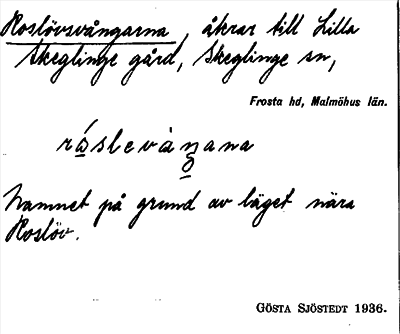 Roslövsvångarna, åkrar till Lilla
Skeglinge gård, Skeglinge sn,
Frosta hd, Malmöhus län.
råslevàŋana
Namnet på grund av läget nära
Roslöv.
GÖSTA SJÖSTEDT 1936.